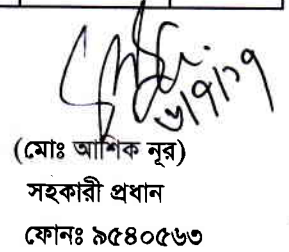 (মোঃ আশিক নূর)
সহকারী প্রধান
ফোনঃ ৯৫৪০৫৬৩